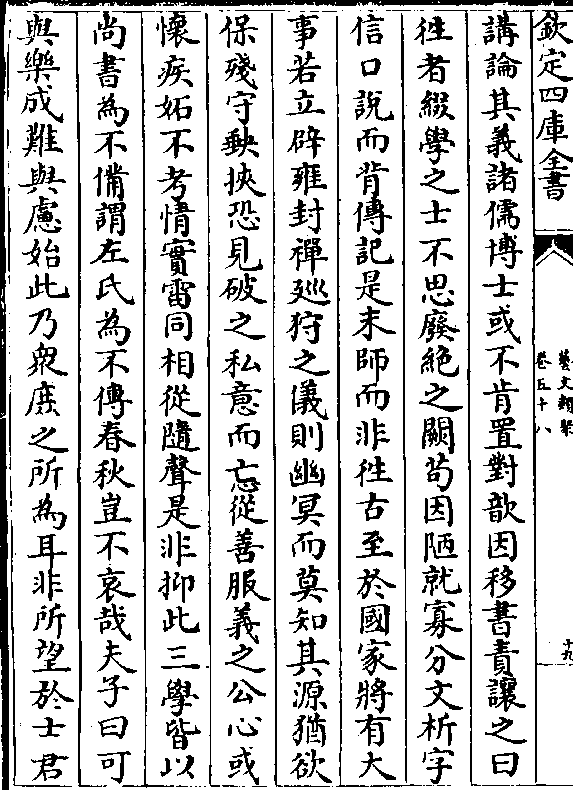 欽定四庫全書
藝文類聚
卷五十八
十九
講論其義諸儒博士或不肯置對歆因移書責讓之曰
徃者綴學之士不思廢絶之闕茍因陋就寡分文析字
信口說而背傳記是末師而非徃古至於國家將有大
事若立辟雍封禪廵狩之儀則幽冥而莫知其源猶欲
保殘守缺挾恐見破之私意而忘從善服義之公心或
懷疾妬不考情實雷同相從隨聲是非抑此三學皆以
尚書為不備謂左氏為不傳春秋豈不哀哉夫子曰可
與樂成難與慮始此乃衆庶之所為耳非所望於士君